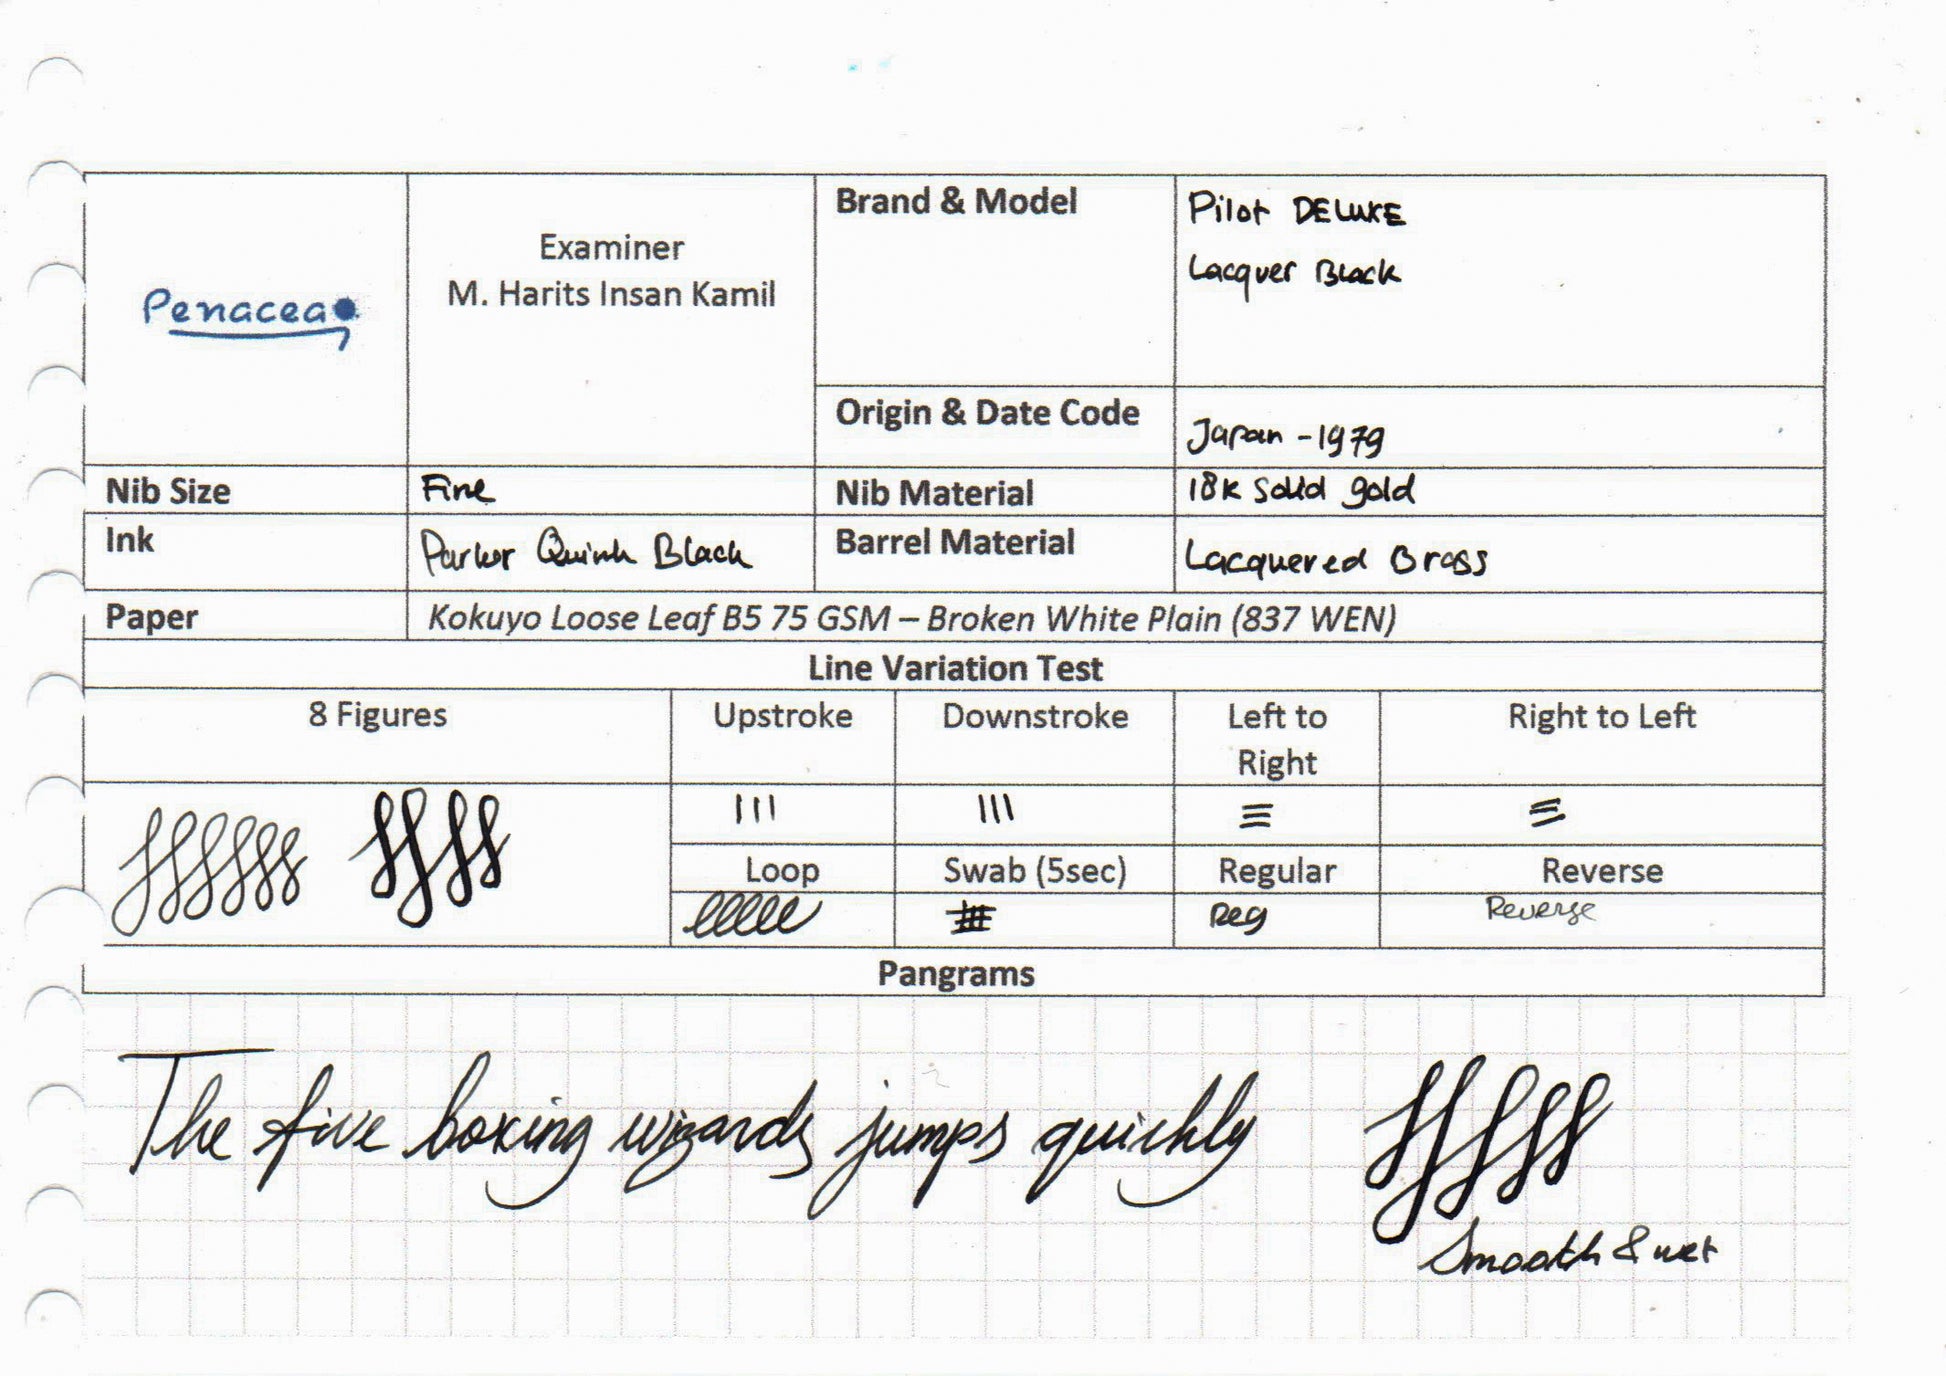 Penacea
Examiner
M. Harits Insan Kamil
Brand & Model
Pilot DELUXE
Lacquer Black
Origin & Date Code
Japan - 1979
Nib Size
Fine
Nib Material
18K Solid gold
Ink
Parker Quink Black
Barrel Material
Lacquered Brass
Paper
Kokuyo Loose Leaf B5 75 GSM – Broken White Plain (837 WEN)
Line Variation Test
8 Figures
Upstroke
Downstroke
Left to
Right
Right to Left
Loop
Swab (5sec)
Regular
Reverse
Reg
Reverse
Pangrams
The five boxing wizards jumps quickly
Smooth & wet